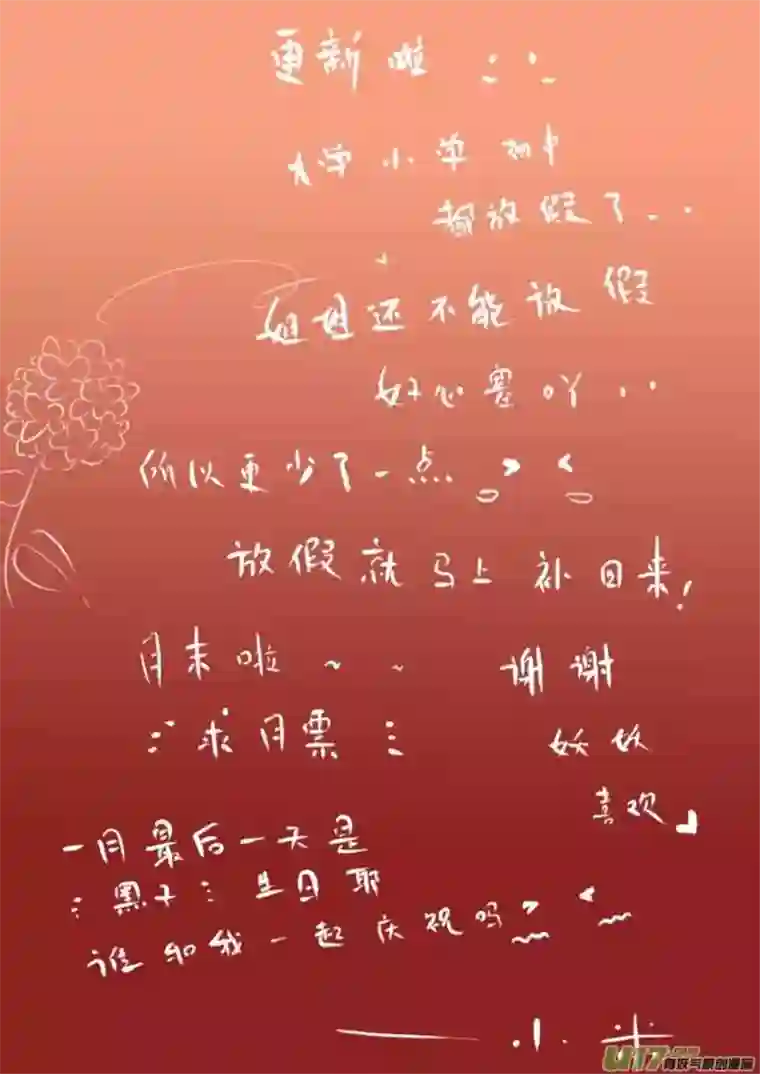 更新啦
大学小学初中
都放假了..
姐姐还不能放假
好心塞吖..
所以更少了一点
放假就马上补回来!
月末啦~~
求月票
谢谢
妖妖
喜欢
一月最后一天是
黑子生日耶
谁和我一起庆祝吗
——小米
U17 有妖气原创漫画